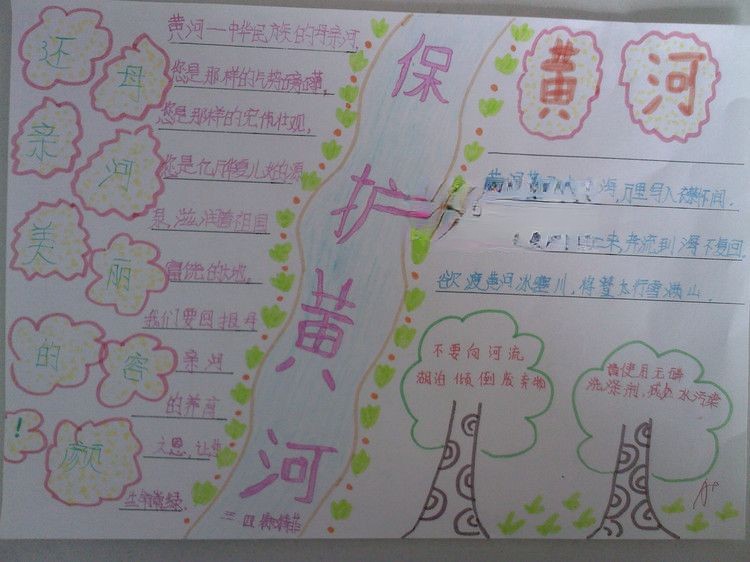 还母亲河美丽的容颜!
黄河—中华民族的母亲河,
您是那样的气势磅礴,
您是那样的宏伟壮观,
您是亿万华夏儿女的源
泉,滋润着祖国
富饶的大地,
我们要回报母
亲河
的养育
之恩,让
保护黄河
三四
黄河
海,万里写入胸怀间.
来奔流到海不复回.
欲渡黄河冰塞川,将登太行雪满山.
不要向河流
湖泊倾倒废弃物
使用无磷
洗涤剂,减少水污染
A+